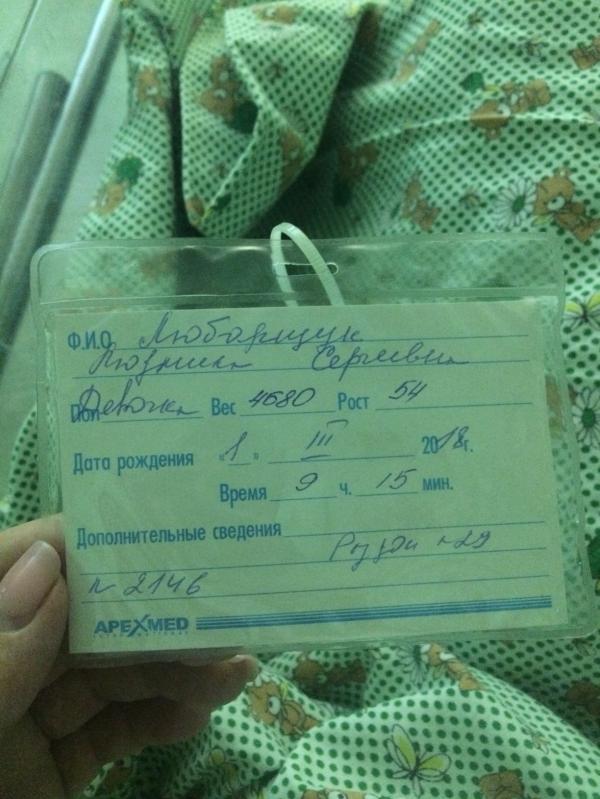 Ф.И.О. Люборщук
Людмила Сергеевна
Пол Девочка Вес 4680 Рост 54
Дата рождения «1» III 2018 г.
Время 9 ч. 15 мин.
Дополнительные сведения
н 29
н 2146
APEXMED